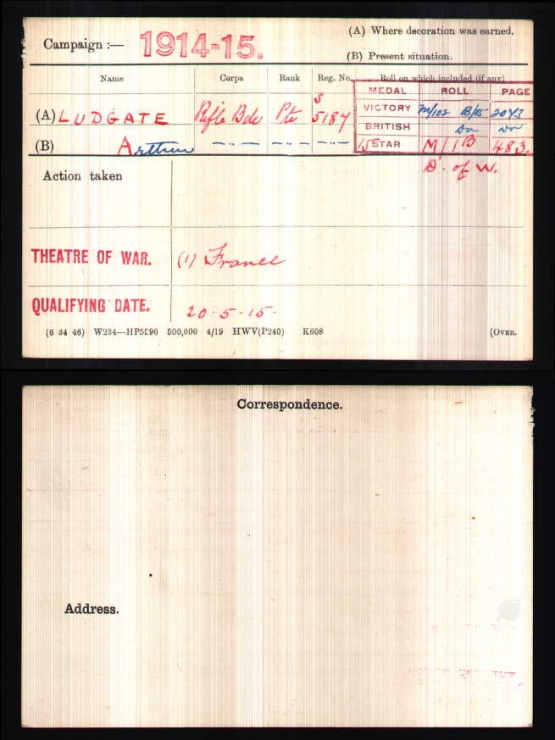 (A) Where decoration was earned.
Campaign :— 1914-15.
(B) Present situation.
Name Corps Rank Reg. No. Roll on which included (if any)
MEDAL ROLL PAGE
(A) LUDGATE Rifle Bde Pte S 5187
VICTORY B/105 2073
BRITISH Do Do
(B) Arthur —"— —"— —"—
15 STAR M/1B 483.
Action taken D. of W.
THEATRE OF WAR. (1) France
QUALIFYING DATE. 20-5-15.
(6 34 46) W234—HP5590 500,000 4/19 HWV(P240) K608 [OVER.
Correspondence.
Address.